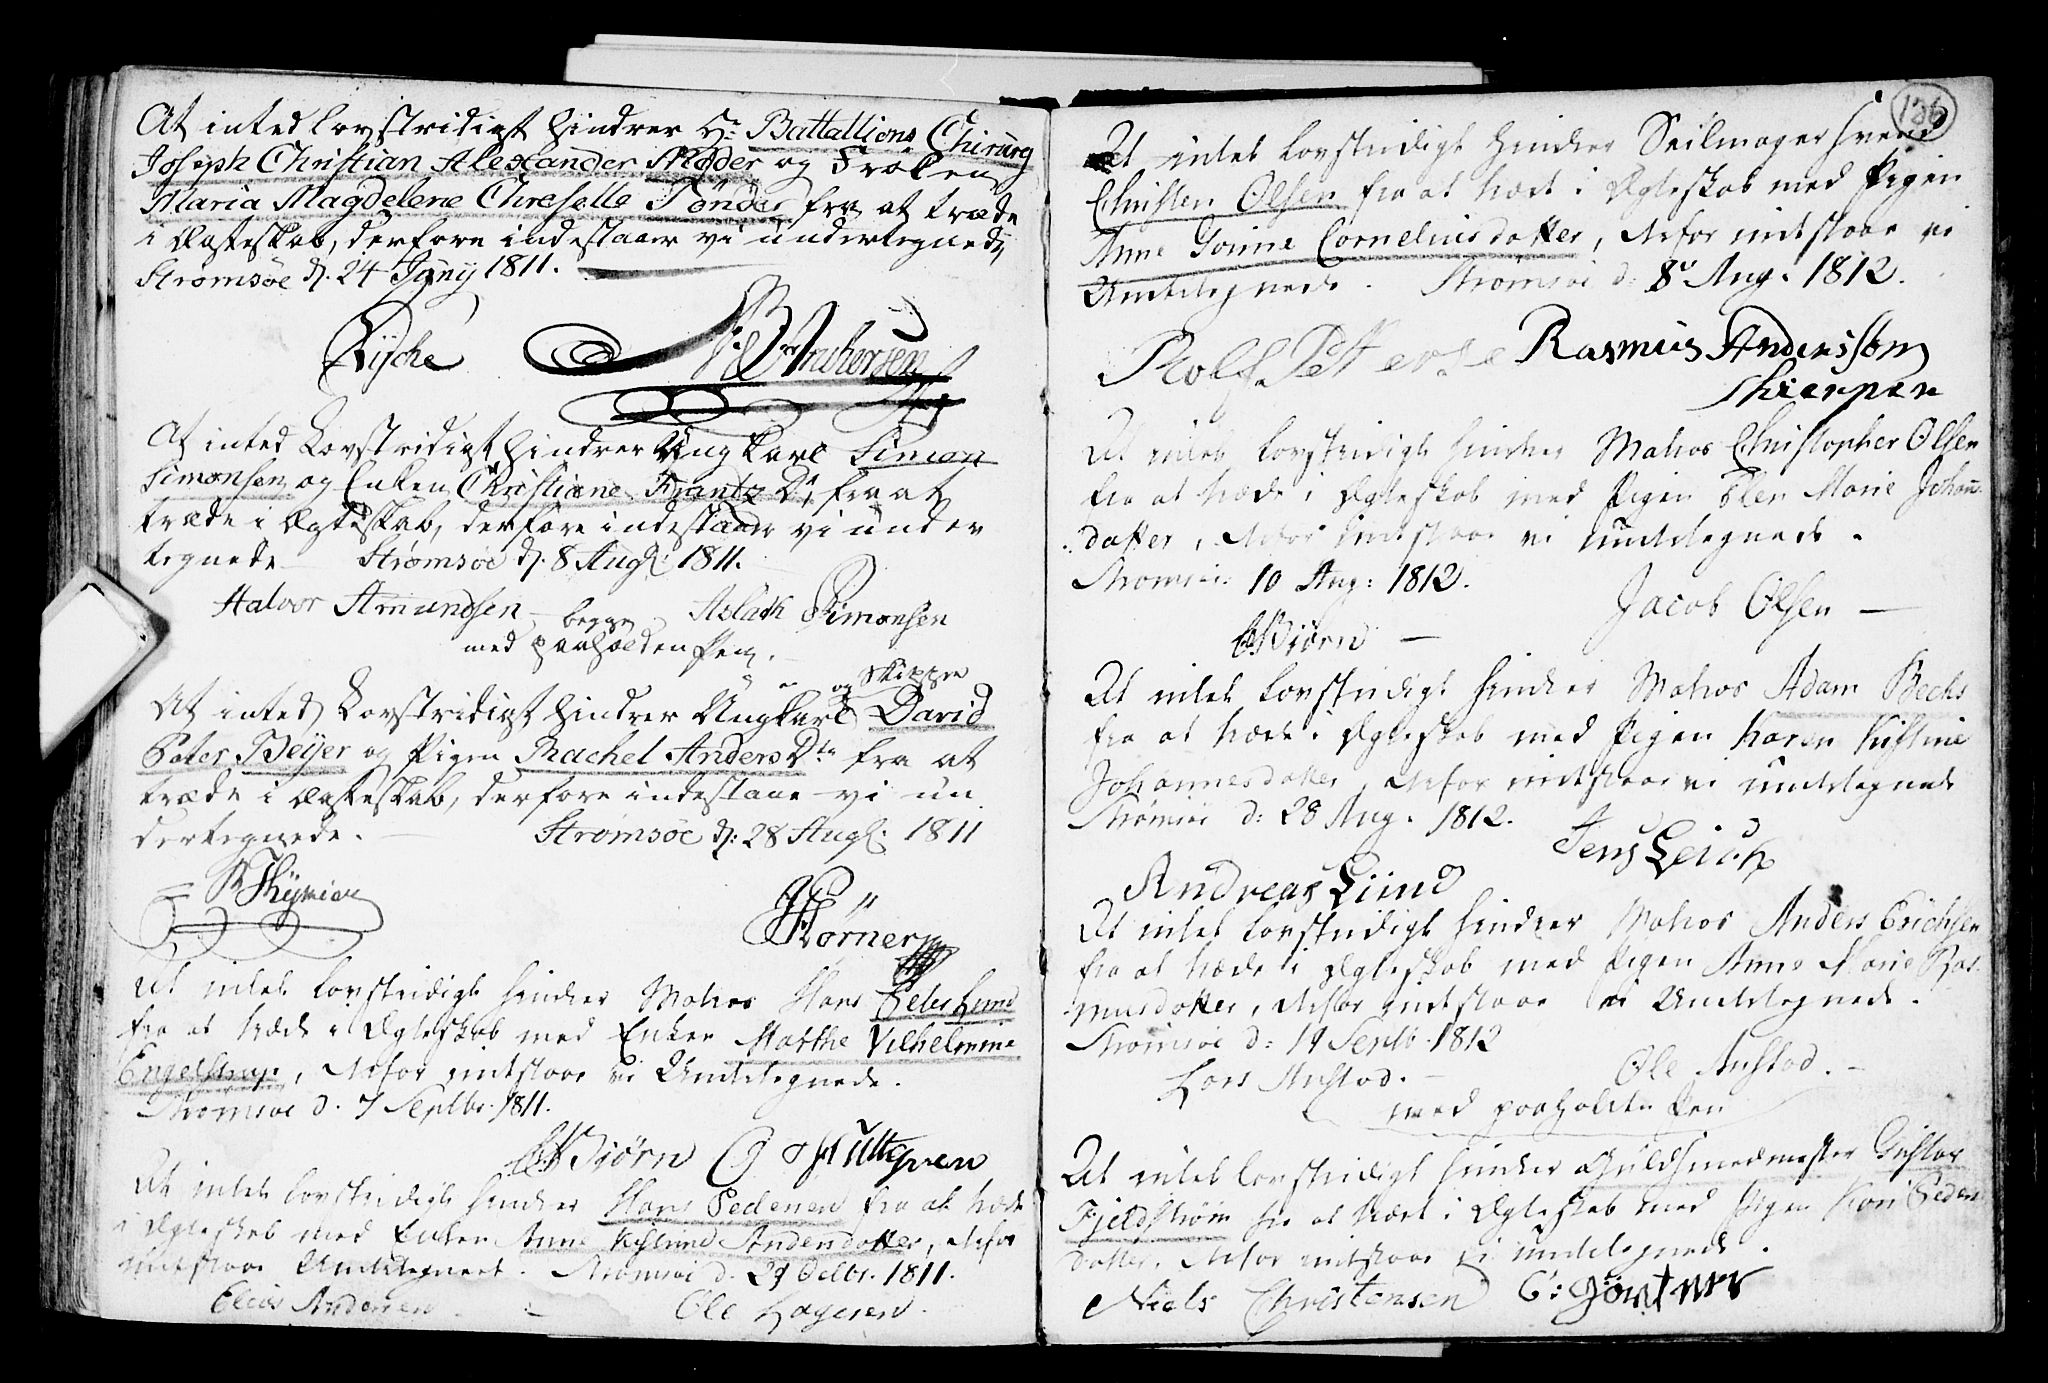 At inted Lovstridigt hindrer Hr. Battallions Chirurg
Joseph Christian Alexander Møder og Frøken
Maria Magdelene Chreselle Tönder, fra at træde
i Ægteskab, derfore indestaaer vi undertegnede,
Strømsøe d. 24 Junÿ 1811.
At inted Lovstridigt hindrer Ung karl Simon
Simonsen og Enken Christiane Frantz Dr., fra at
træde i Ægteskab, derfore indestaaer vi under
tegnede Strømsøe d. 8 Augt: 1811.
Halvor Amundsen Aslach Simonsen
begge
med paaholden Pen.
og Skipper
At inted Lovstridigt hindrer Ungkarl David
Peter Beÿer og Pigen Rachel Anders Dtr fra at
træde i Ægteskab, derfore indestaae vi un
dertegnede. Strømsøe d: 28 Augt: 1811
Hörner
At intet lovstridigt hindrer Matros Hans Peter Lund
fra at træde i Ægteskab med Enken Marthe Vilhelmine
Engelstrup, derfor indstaae vi Undertegnede.
Strømsøe d. 7 Septbr. 1811.
Bjørn
At intet lovstridigt hindrer Hans Pedersen fra at træde
i Ægteskab med Enken Anne Kistine Andersdatter, derfor
indstaae Undertegnede. Strømsøe d. 29 Octbr. 1811.
Elias Andersen Ole
136
At intet lovstridigt hindrer Seilmager Svend
Christen Olsen fra at træde i Ægteskab med Pigen
Anne Gorine Corneliusdatter, derfor indstaae vi
Undertegnede. Strømsøe d: 8de Aug. 1812.
Rolf Petterse Rasmus Andersson
At intet lovstridigt hindrer Matros Christopher Olsen
fra at træde i Ægteskab med Pigen Elen Marie Johan
datter, derfor indstaae vi undertegnede.
Strømsøe 10 Aug: 1812.
Jacob Olsen
Bjørn
At intet lovstridigt hindrer Matros Adam Becks
fra at træde i Ægteskab med Pigen Karen Kistine
Johannesdatter, derfor indstaae vi undertegnede
Strømsøe d: 28 Aug. 1812.
Jens Leich
Andreas Lund
At intet lovstridigt hindrer Matros Anders Erichsen
fra at træde i Ægteskab med Pigen Anne Marie Ras
musdatter, derfor indstaae vi Undertegnede.
Strømsøe d: 19 Septb. 1812
Lars Anstad. Ole Anstad.
med paaholdte Pen
At intet lovstridigt hindrer Guldsmedmester Gustav
Fjeldstrøm fra at træde i Ægteskab med Pigen Kari Peders
datter. derfor indstaae vi undertegnede.
Niels Christensen C: Görtner